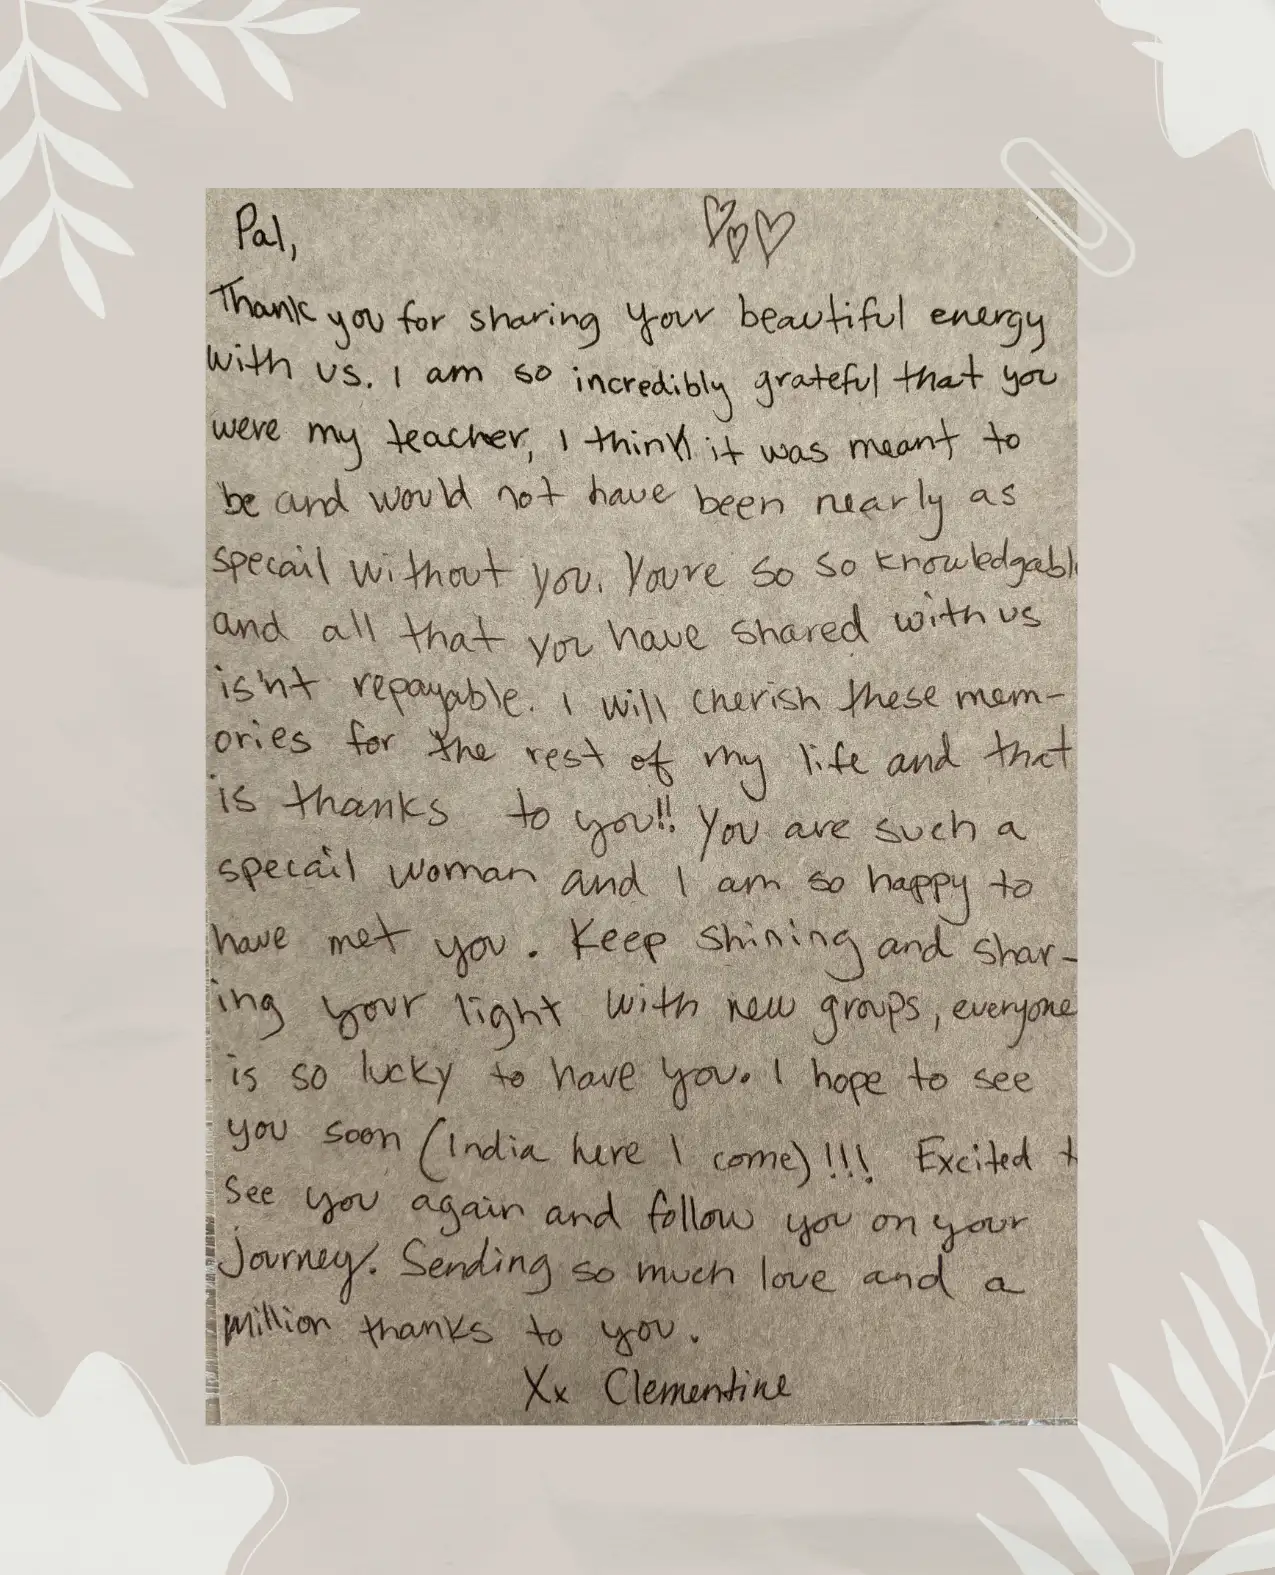 Pal,
Thank you for sharing your beautiful energy
with us. I am so incredibly grateful that you
were my teacher, I think it was meant to
be and would not have been nearly as
specail without you. Youre so so knowledgabl
and all that you have shared with us
is'nt repayable. I will cherish these mem-
ories for the rest of my life and that
is thanks to you!! You are such a
specail woman and I am so happy to
have met you. Keep shining and shar-
ing your light with new groups, everyone
is so lucky to have you. I hope to see
you soon (India here I come)!!! Excited t
see you again and follow you on your
journey. Sending so much love and a
million thanks to you.
Xx Clementine